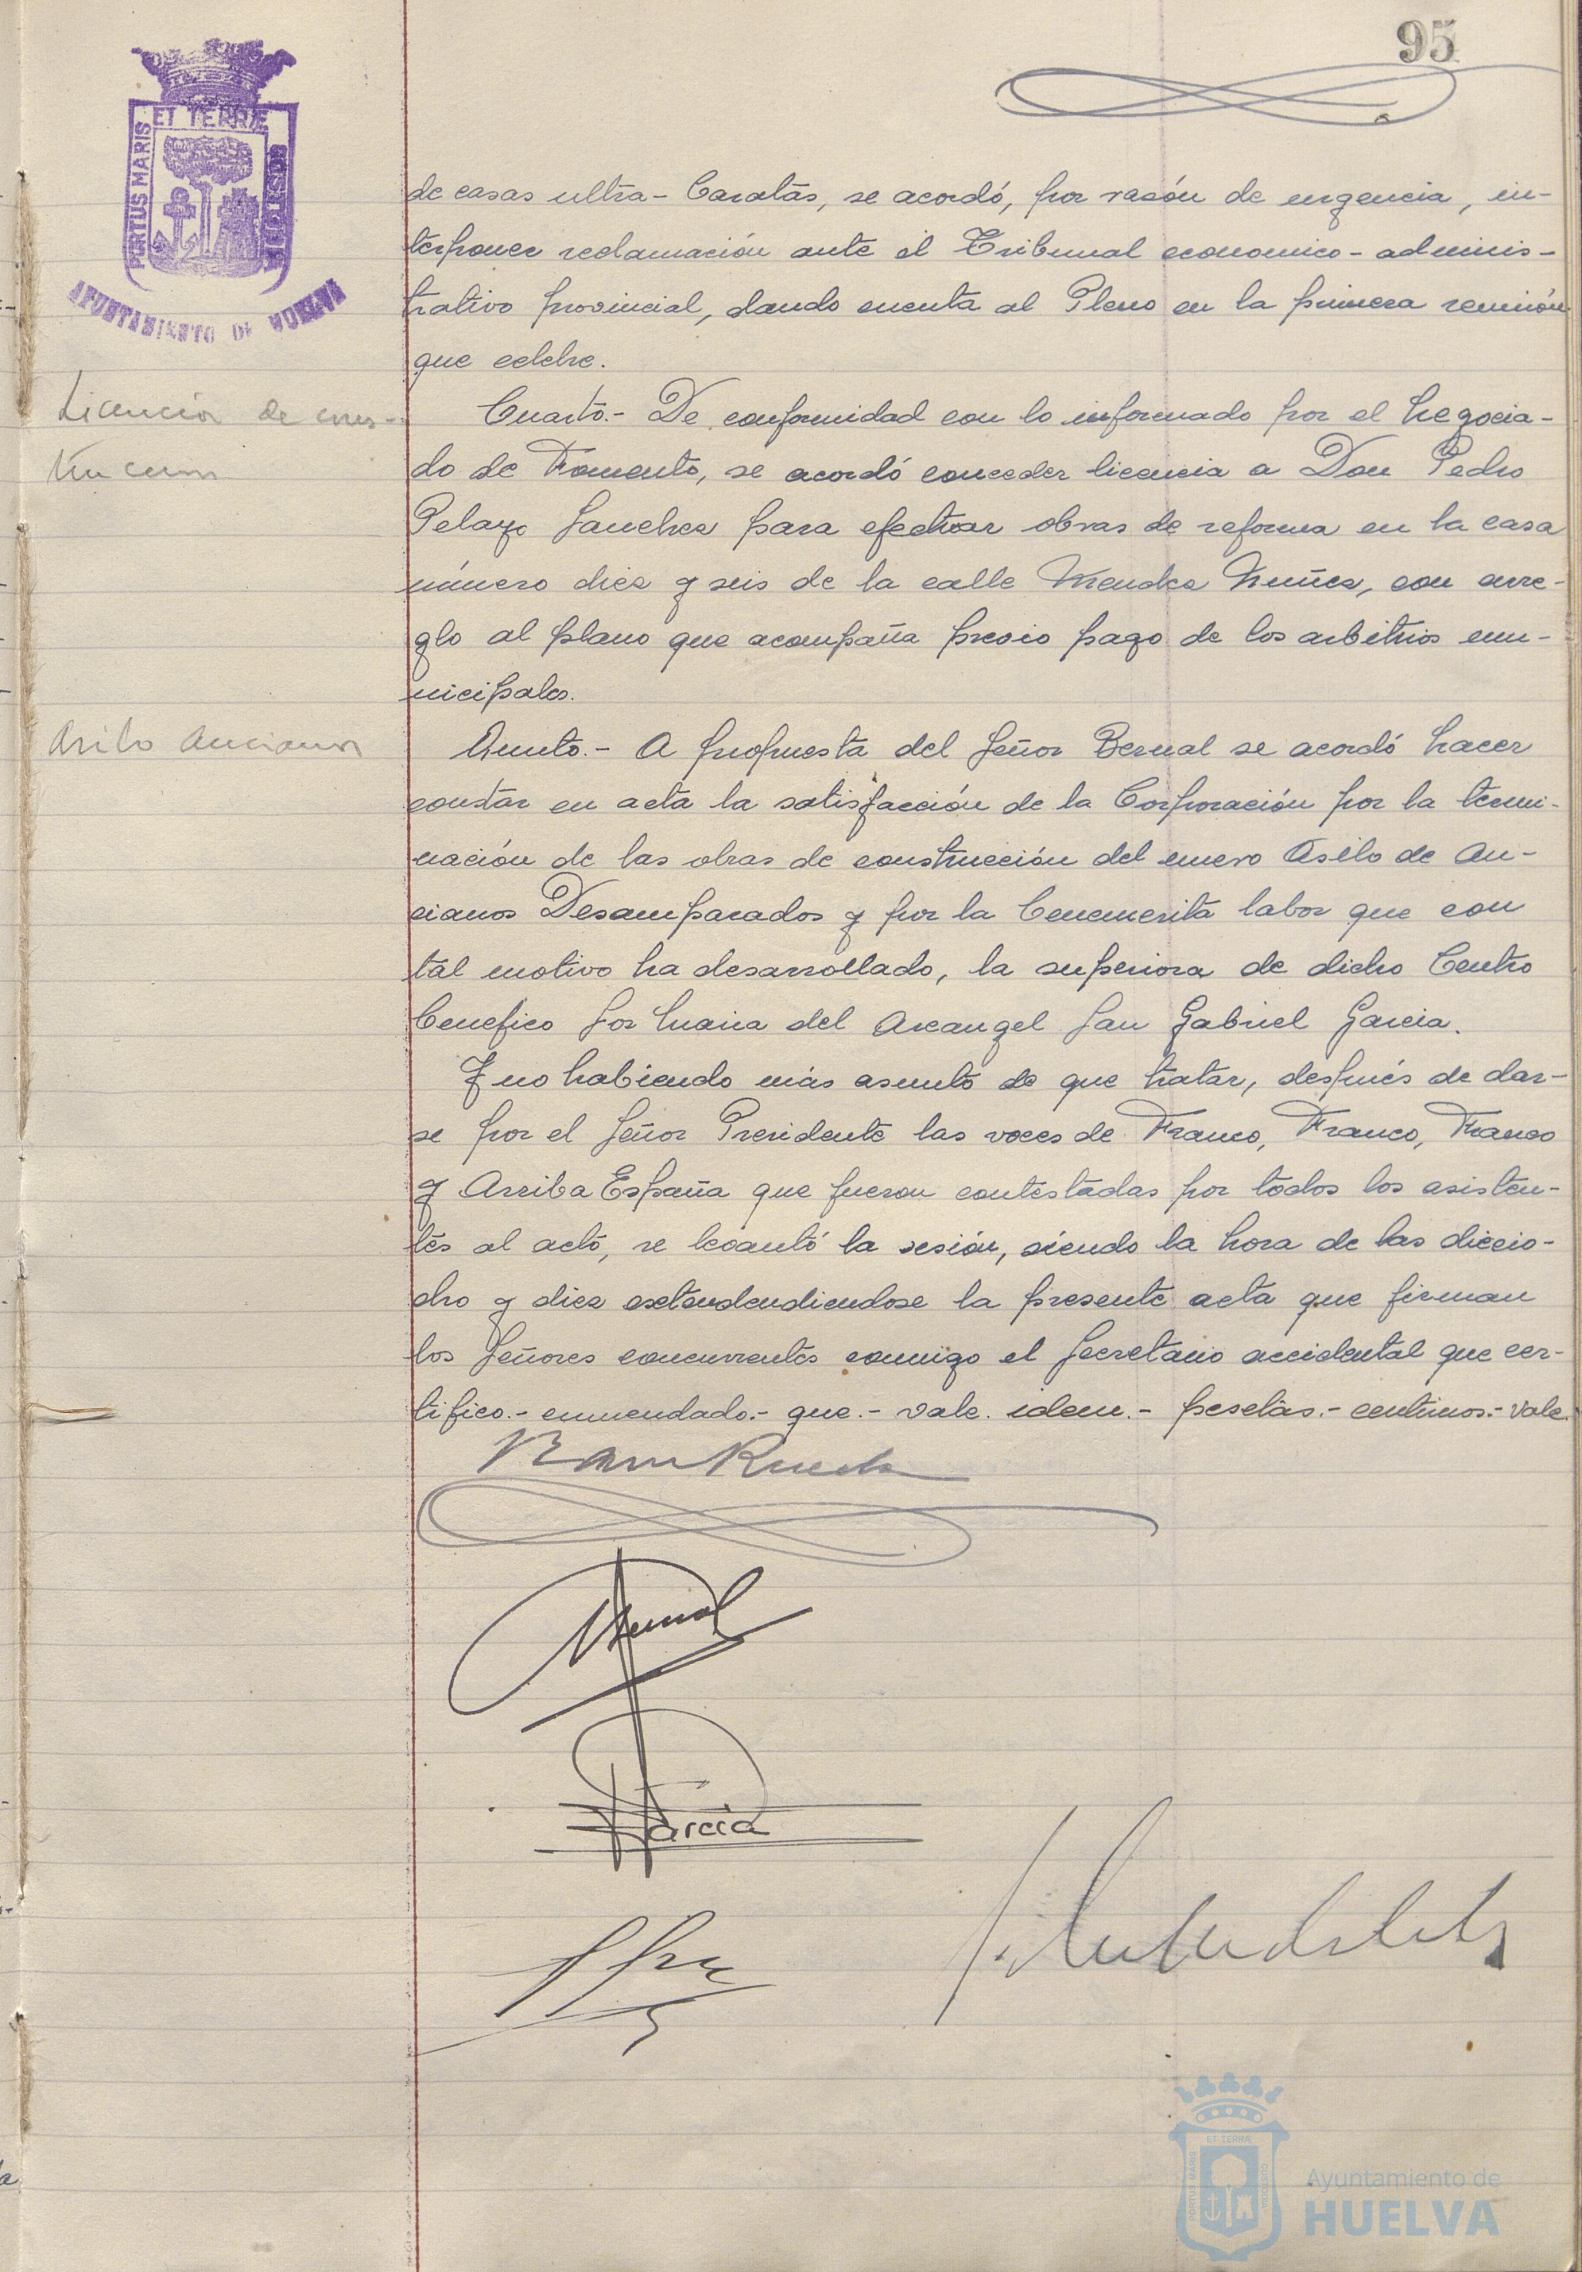 95
PORTUS MARIS
ET TERRÆ
CUSTODIA
AYUNTAMIENTO DE HUELVA
de casas ultra-baratas, se acordó, por razón de urgencia, in-
terponer reclamación ante el Tribunal economico-adminis-
trativo provincial, dando cuenta al Pleno en la primera reunión
que celebre.
Licencia de cons-
truccion
Cuarto.- De conformidad con lo informado por el Negocia-
do de Fomento, se acordó conceder licencia a Don Pedro
Pelayo Sanchez para efectuar obras de reforma en la casa
número diez y seis de la calle Mendez Nuñez, con arre-
glo al plano que acompaña previo pago de los arbitrios mu-
nicipales.
Asilo Ancianos
Quinto.- A propuesta del Señor Bernal se acordó hacer
constar en acta la satisfacción de la Corporación por la termi-
nación de las obras de construcción del nuevo Asilo de An-
cianos Desamparados y por la benemerita labor que con
tal motivo ha desarrollado, la superiora de dicho Centro
benefico Sor Maria del Arcangel San Gabriel Garcia.
Y no habiendo más asunto de que tratar, después de dar-
se por el Señor Presidente las voces de Franco, Franco, Franco
y Arriba España que fueron contestadas por todos los asisten-
tes al acto, se levantó la sesión, siendo la hora de las diecio-
cho y diez extendendiendose la presente acta que firman
los Señores concurrentes conmigo el Secretario accidental que cer-
tifico.- enmendado.- que.- vale. idem.- pesetas.- centimos.- vale.
Bernal
Garcia
ET TERRÆ
PORTUS MARIS
CUSTODIA
Ayuntamiento de
HUELVA